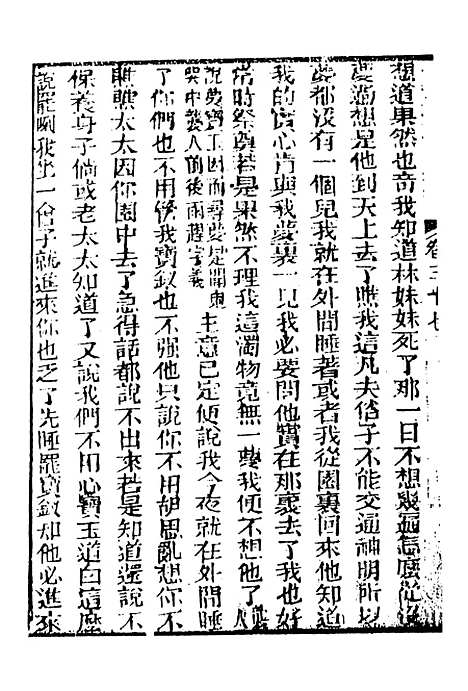 想道果然也奇我知道林妹妹死了那一日不想幾遍怎麼從沒
夢過想是他到天上去了瞧我這凡夫俗子不能交通神明所以
夢都沒有一個兒我就在外間睡著或者我從園裏回來他知道
我的實心肯與我夢裏一見我必要問他實在那裏去了我也好
常時祭奠若是果然不理我這濁物竟無一夢我便不想他了
說夢寶玉因而尋夢是開東
哭中襲人前後兩遲字義
主意已定便說我今夜就在外間睡
了你們也不用管我寶釵也不强他只說你不用胡思亂想你不
瞧瞧太太因你園中去了急得話都說不出來若是知道還說不
保養身子倘或老太太知道了又說我們不用心寶玉道白這麼
說罷咧我坐一會子就進來你也乏了先睡罷寶釵知他必進來
卷三十七